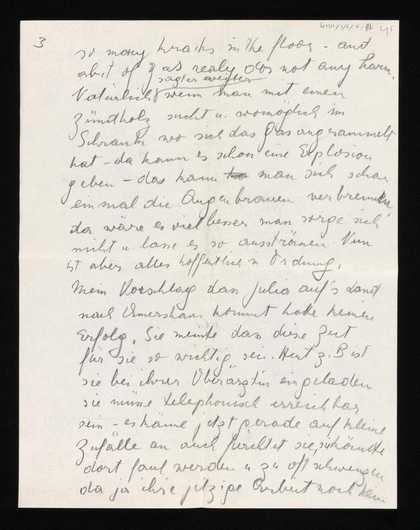 3
so many cracks in the floor - and
a bit of gas realy dos not any harm.
sagten
Natürlich wenn man mit einem
Zündholz sucht u. womöglich im
Schrank wo sich das Gas angesammelt
hat - da kann es schon eine Explosion
geben - das kann man sich schon
einmal die Augenbrauen verbrennen
da wäre es viel besser man sorge sich
nicht u lasse es so ausströmen Nun
ist aber alles hoffentlich in Ordnung.
Mein Vorschlag dass Julia auf's Land
nach kommt hatte keinen
Erfolg. Sie meinte dass diese Zeit
für sie so wichtig sei. Heut z.B ist
sie bei ihrer Oberärztin eingeladen
sie müsse telephonisch erreichbar
sein - es käme jetzt gerade auf kleine
Zufälle an auch fürchtet sie, sie könnte
dort faul werden u zu oft schwimmen
da ja ihre jetzige Arbeit noch kein